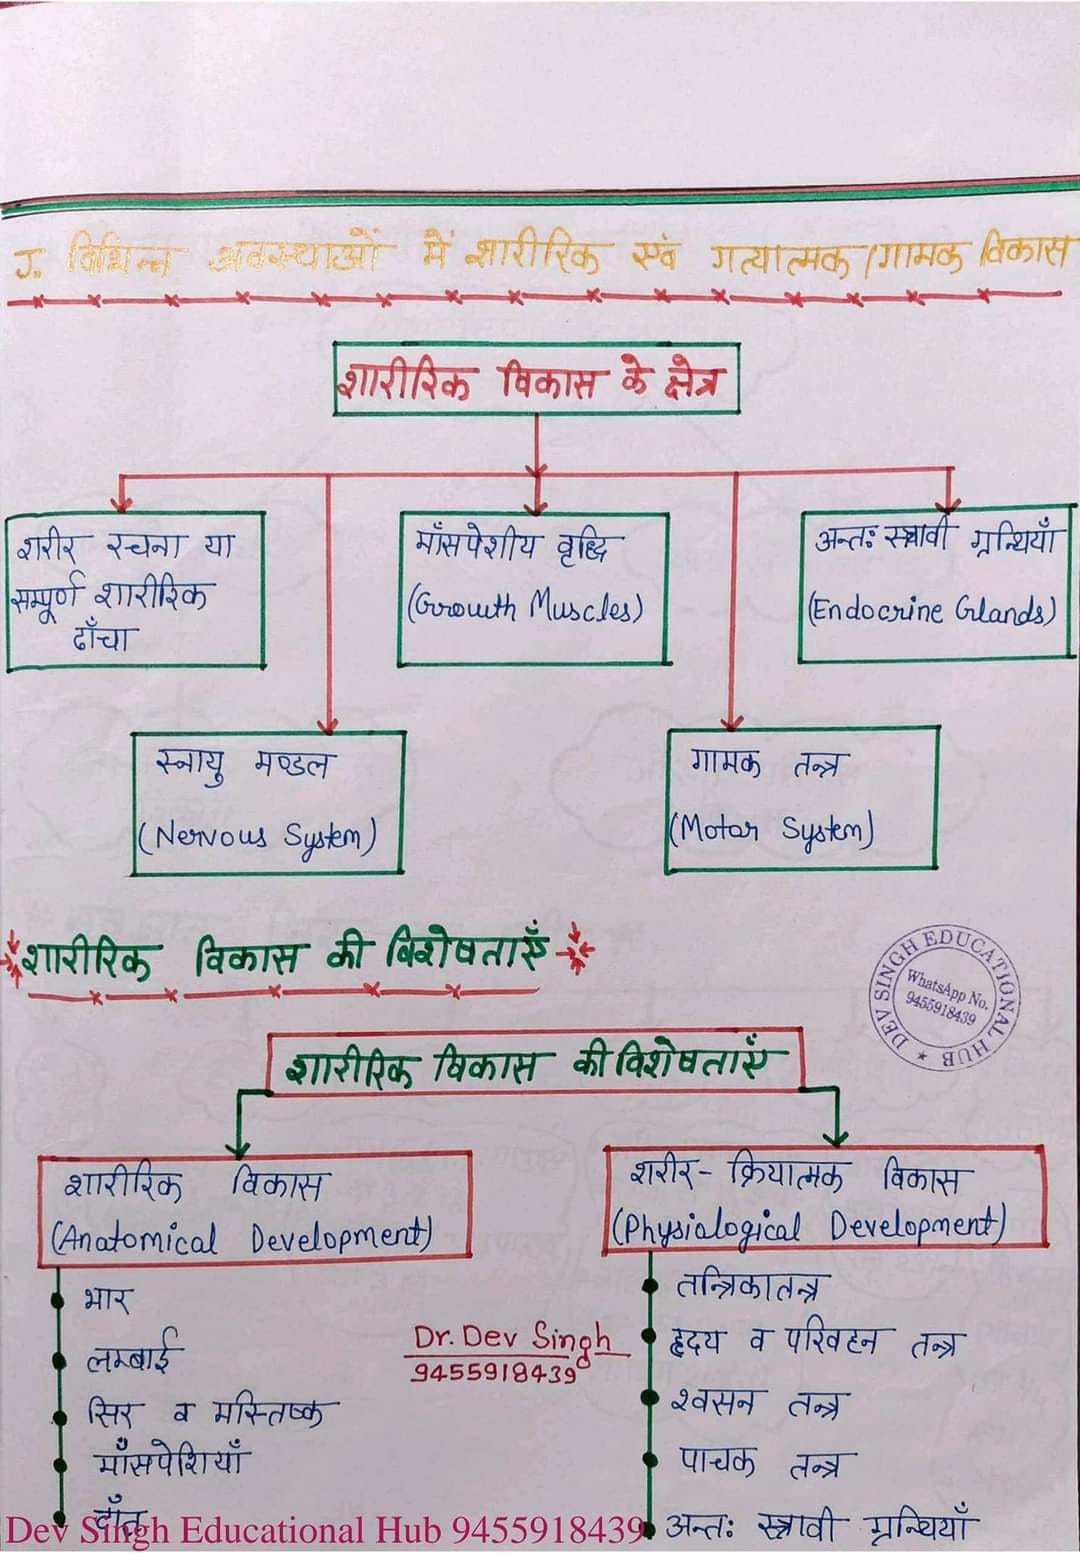 J. विभिन्न अवस्थाओं में शारीरिक एवं गत्यात्मक/गामक विकास
शारीरिक विकास के क्षेत्र
शरीर रचना या
सम्पूर्ण शारीरिक
ढाँचा
माँसपेशीय वृद्धि
(Growth Muscles)
अन्तः स्त्रावी ग्रन्थियाँ
(Endocrine Glands)
स्नायु मण्डल
(Nervous System)
गामक तन्त्र
(Motor System)
शारीरिक विकास की विशेषताएँ
DEV SINGH EDUCATIONAL HUB
WhatsApp No.
9455918439
शारीरिक विकास की विशेषताएँ
शारीरिक विकास
(Anatomical Development)
भार
लम्बाई
सिर व मस्तिष्क
माँसपेशियाँ
दाँत
Dr. Dev Singh
9455918439
शरीर-क्रियात्मक विकास
(Physiological Development)
तन्त्रिकातन्त्र
हृदय व परिवहन तन्त्र
श्वसन तन्त्र
पाचक तन्त्र
अन्तः स्त्रावी ग्रन्थियाँ
Dev Singh Educational Hub 9455918439